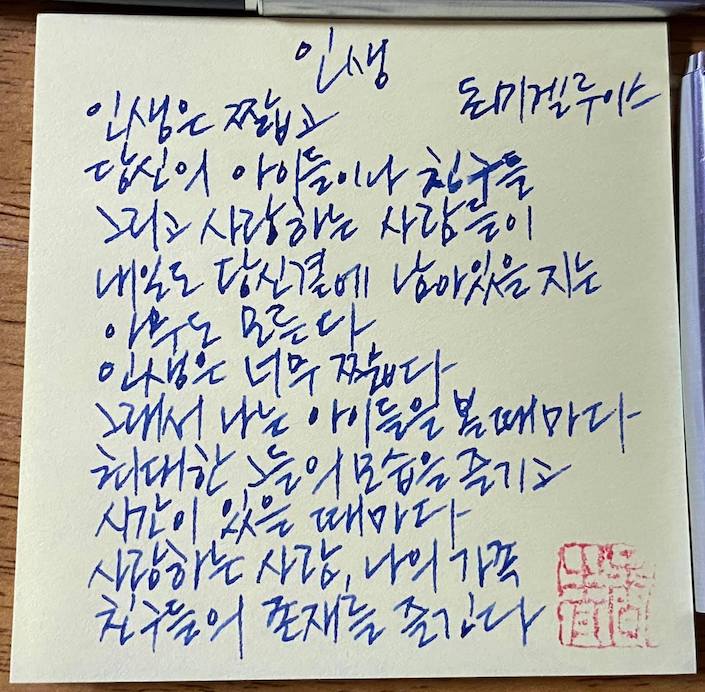 인생
돈미겔루이스
인생은 짧고
당신의 아이들이나 친구들
그리고 사랑하는 사람들이
내일도 당신곁에 남아있을지는
아무도 모른다
인생은 너무 짧다
그래서 나는 아이들을 볼때마다
최대한 그들의 모습을 즐기고
시간이 있을 때마다
사랑하는 사람, 나의 가족
친구들의 존재를 즐긴다